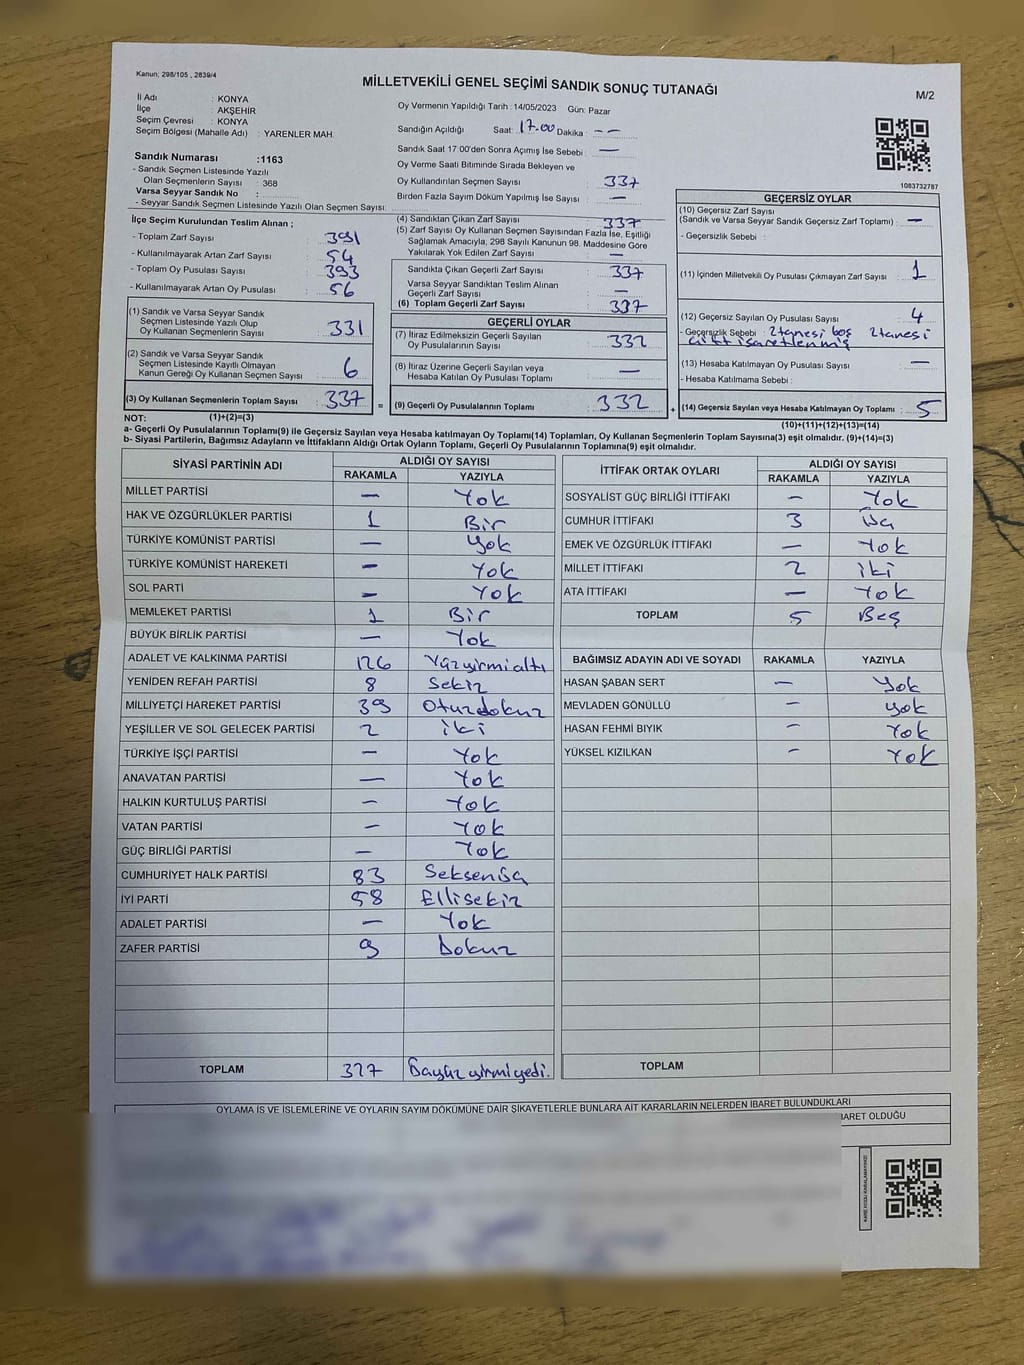 Kanun: 298/105 , 2839/4
MİLLETVEKİLİ GENEL SEÇİMİ SANDIK SONUÇ TUTANAĞI
M/2
İl Adı : KONYA
İlçe : AKŞEHİR
Seçim Çevresi : KONYA
Seçim Bölgesi (Mahalle Adı) : YARENLER MAH.
Sandık Numarası :1163
- Sandık Seçmen Listesinde Yazılı
Olan Seçmenlerin Sayısı : 368
Varsa Seyyar Sandık No :
- Seyyar Sandık Seçmen Listesinde Yazılı Olan Seçmen Sayısı:
Oy Vermenin Yapıldığı Tarih :14/05/2023 Gün: Pazar
Sandığın Açıldığı Saat: 17.00 Dakika : --
Sandık Saat 17:00'den Sonra Açımış İse Sebebi : —
Oy Verme Saati Bitiminde Sırada Bekleyen ve
Oy Kullandırılan Seçmen Sayısı : 337
Birden Fazla Sayım Döküm Yapılmış İse Sayısı : —
1083732787
İlçe Seçim Kurulundan Teslim Alınan ;
- Toplam Zarf Sayısı : 391
- Kullanılmayarak Artan Zarf Sayısı : 54
- Toplam Oy Pusulası Sayısı : 393
- Kullanılmayarak Artan Oy Pusulası : 56
(1) Sandık ve Varsa Seyyar Sandık
Seçmen Listesinde Yazılı Olup
Oy Kullanan Seçmenlerin Sayısı : 331
(2) Sandık ve Varsa Seyyar Sandık
Seçmen Listesinde Kayıtlı Olmayan
Kanun Gereği Oy Kullanan Seçmen Sayısı : 6
(3) Oy Kullanan Seçmenlerin Toplam Sayısı : 337
(4) Sandıktan Çıkan Zarf Sayısı : 337
(5) Zarf Sayısı Oy Kullanan Seçmen Sayısından Fazla İse, Eşitliği
Sağlamak Amacıyla, 298 Sayılı Kanunun 98. Maddesine Göre
Yakılarak Yok Edilen Zarf Sayısı : —
Sandıkta Çıkan Geçerli Zarf Sayısı : 337
Varsa Seyyar Sandıktan Teslim Alınan
Geçerli Zarf Sayısı : —
(6) Toplam Geçerli Zarf Sayısı : 337
GEÇERLİ OYLAR
(7) İtiraz Edilmeksizin Geçerli Sayılan
Oy Pusulalarının Sayısı : 332
(8) İtiraz Üzerine Geçerli Sayılan veya
Hesaba Katılan Oy Pusulası Toplamı : —
= (9) Geçerli Oy Pusulalarının Toplamı : 332
GEÇERSİZ OYLAR
(10) Geçersiz Zarf Sayısı
(Sandık ve Varsa Seyyar Sandık Geçersiz Zarf Toplamı) : —
- Geçersizlik Sebebi :
(11) İçinden Milletvekili Oy Pusulası Çıkmayan Zarf Sayısı : 1
(12) Geçersiz Sayılan Oy Pusulası Sayısı : 4
- Geçersizlik Sebebi : 2tanesi boş 2tanesi
çift işaretlenmiş
(13) Hesaba Katılmayan Oy Pusulası Sayısı : —
- Hesaba Katılmama Sebebi :
+ (14) Geçersiz Sayılan veya Hesaba Katılmayan Oy Toplamı : 5
NOT: (1)+(2)=(3)
(10)+(11)+(12)+(13)=(14)
a- Geçerli Oy Pusulalarının Toplamı(9) ile Geçersiz Sayılan veya Hesaba katılmayan Oy Toplamı(14) Toplamları, Oy Kullanan Seçmenlerin Toplam Sayısına(3) eşit olmalıdır. (9)+(14)=(3)
b- Siyasi Partilerin, Bağımsız Adayların ve İttifakların Aldığı Oyların Toplamı, Geçerli Oy Pusulalarının Toplamına(9) eşit olmalıdır.
SİYASİ PARTİNİN ADI ALDIĞI OY SAYISI
RAKAMLA YAZIYLA
MİLLET PARTİSİ — Yok
HAK VE ÖZGÜRLÜKLER PARTİSİ 1 Bir
TÜRKİYE KOMÜNİST PARTİSİ — Yok
TÜRKİYE KOMÜNİST HAREKETİ — Yok
SOL PARTİ — Yok
MEMLEKET PARTİSİ 1 Bir
BÜYÜK BİRLİK PARTİSİ — Yok
ADALET VE KALKINMA PARTİSİ 126 Yüzyirmialtı
YENİDEN REFAH PARTİSİ 8 Sekiz
MİLLİYETÇİ HAREKET PARTİSİ 39 Otuzdokuz
YEŞİLLER VE SOL GELECEK PARTİSİ 2 iki
TÜRKİYE İŞÇİ PARTİSİ — Yok
ANAVATAN PARTİSİ — Yok
HALKIN KURTULUŞ PARTİSİ — Yok
VATAN PARTİSİ — Yok
GÜÇ BİRLİĞİ PARTİSİ — Yok
CUMHURİYET HALK PARTİSİ 83 Seksenüç
İYİ PARTİ 58 Ellisekiz
ADALET PARTİSİ — Yok
ZAFER PARTİSİ 9 Dokuz
TOPLAM 327 Üçyüz yirmiyedi.
İTTİFAK ORTAK OYLARI ALDIĞI OY SAYISI
RAKAMLA YAZIYLA
SOSYALİST GÜÇ BİRLİĞİ İTTİFAKI — Yok
CUMHUR İTTİFAKI 3 üç
EMEK VE ÖZGÜRLÜK İTTİFAKI — Yok
MİLLET İTTİFAKI 2 iki
ATA İTTİFAKI — Yok
TOPLAM 5 Beş
BAĞIMSIZ ADAYIN ADI VE SOYADI RAKAMLA YAZIYLA
HASAN ŞABAN SERT — Yok
MEVLADEN GÖNÜLLÜ — Yok
HASAN FEHMİ BIYIK — Yok
YÜKSEL KIZILKAN — Yok
TOPLAM
OYLAMA İŞ VE İŞLEMLERİNE VE OYLARIN SAYIM DÖKÜMÜNE DAİR ŞİKAYETLERLE BUNLARA AİT KARARLARIN NELERDEN İBARET BULUNDUKLARI
BARET OLDUĞU
KARE KODU KARALAMAYINIZ!